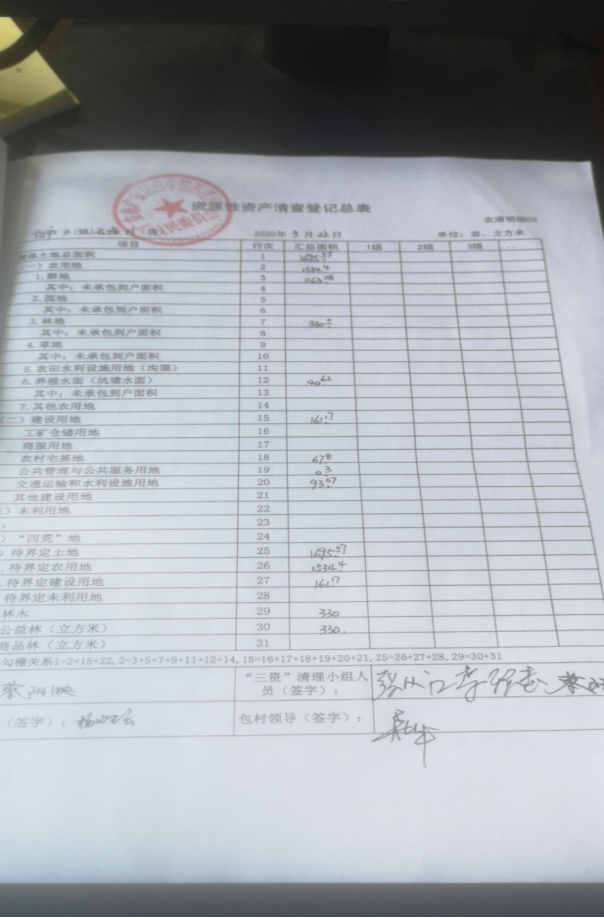 资源性资产清查登记总表
表清明细03
乡(镇) 2020年3月22日 单位：亩、立方米
项目 行次 汇总面积 1组 2组 3组 ...
集体土地总面积 1 1695.57
(一）农用地 2 1534.4
1.耕地 3
其中：未承包到户面积 4
2.园地 5
其中：未承包到户面积 6
3.林地 7 330
其中：未承包到户面积 8
4.草地 9
其中：未承包到户面积 10
5.农田水利设施用地（沟渠） 11
6.养殖水面（坑塘水面） 12 40.62
其中：未承包到户面积 13
7.其他农用地 14
（二）建设用地 15 161.17
工矿仓储用地 16
商服用地 17
农村宅基地 18 67.8
公共管理与公共服务用地 19 0.3
交通运输和水利设施用地 20 93.07
其他建设用地 21
）未利用地 22
： 23
）“四荒”地 24
）待界定土地 25 1695.57
.待界定农用地 26 1534.4
.待界定建设用地 27 161.17
待界定未利用地 28
林木 29 330
公益林（立方米） 30 330
商品林（立方米） 31
勾稽关系1=2+15+22, 2=3+5+7+9+11+12+14, 15=16+17+18+19+20+21, 25=26+27+28, 29=30+31
“三资”清理小组人员（签字）：
（签字）： 包村领导（签字）：